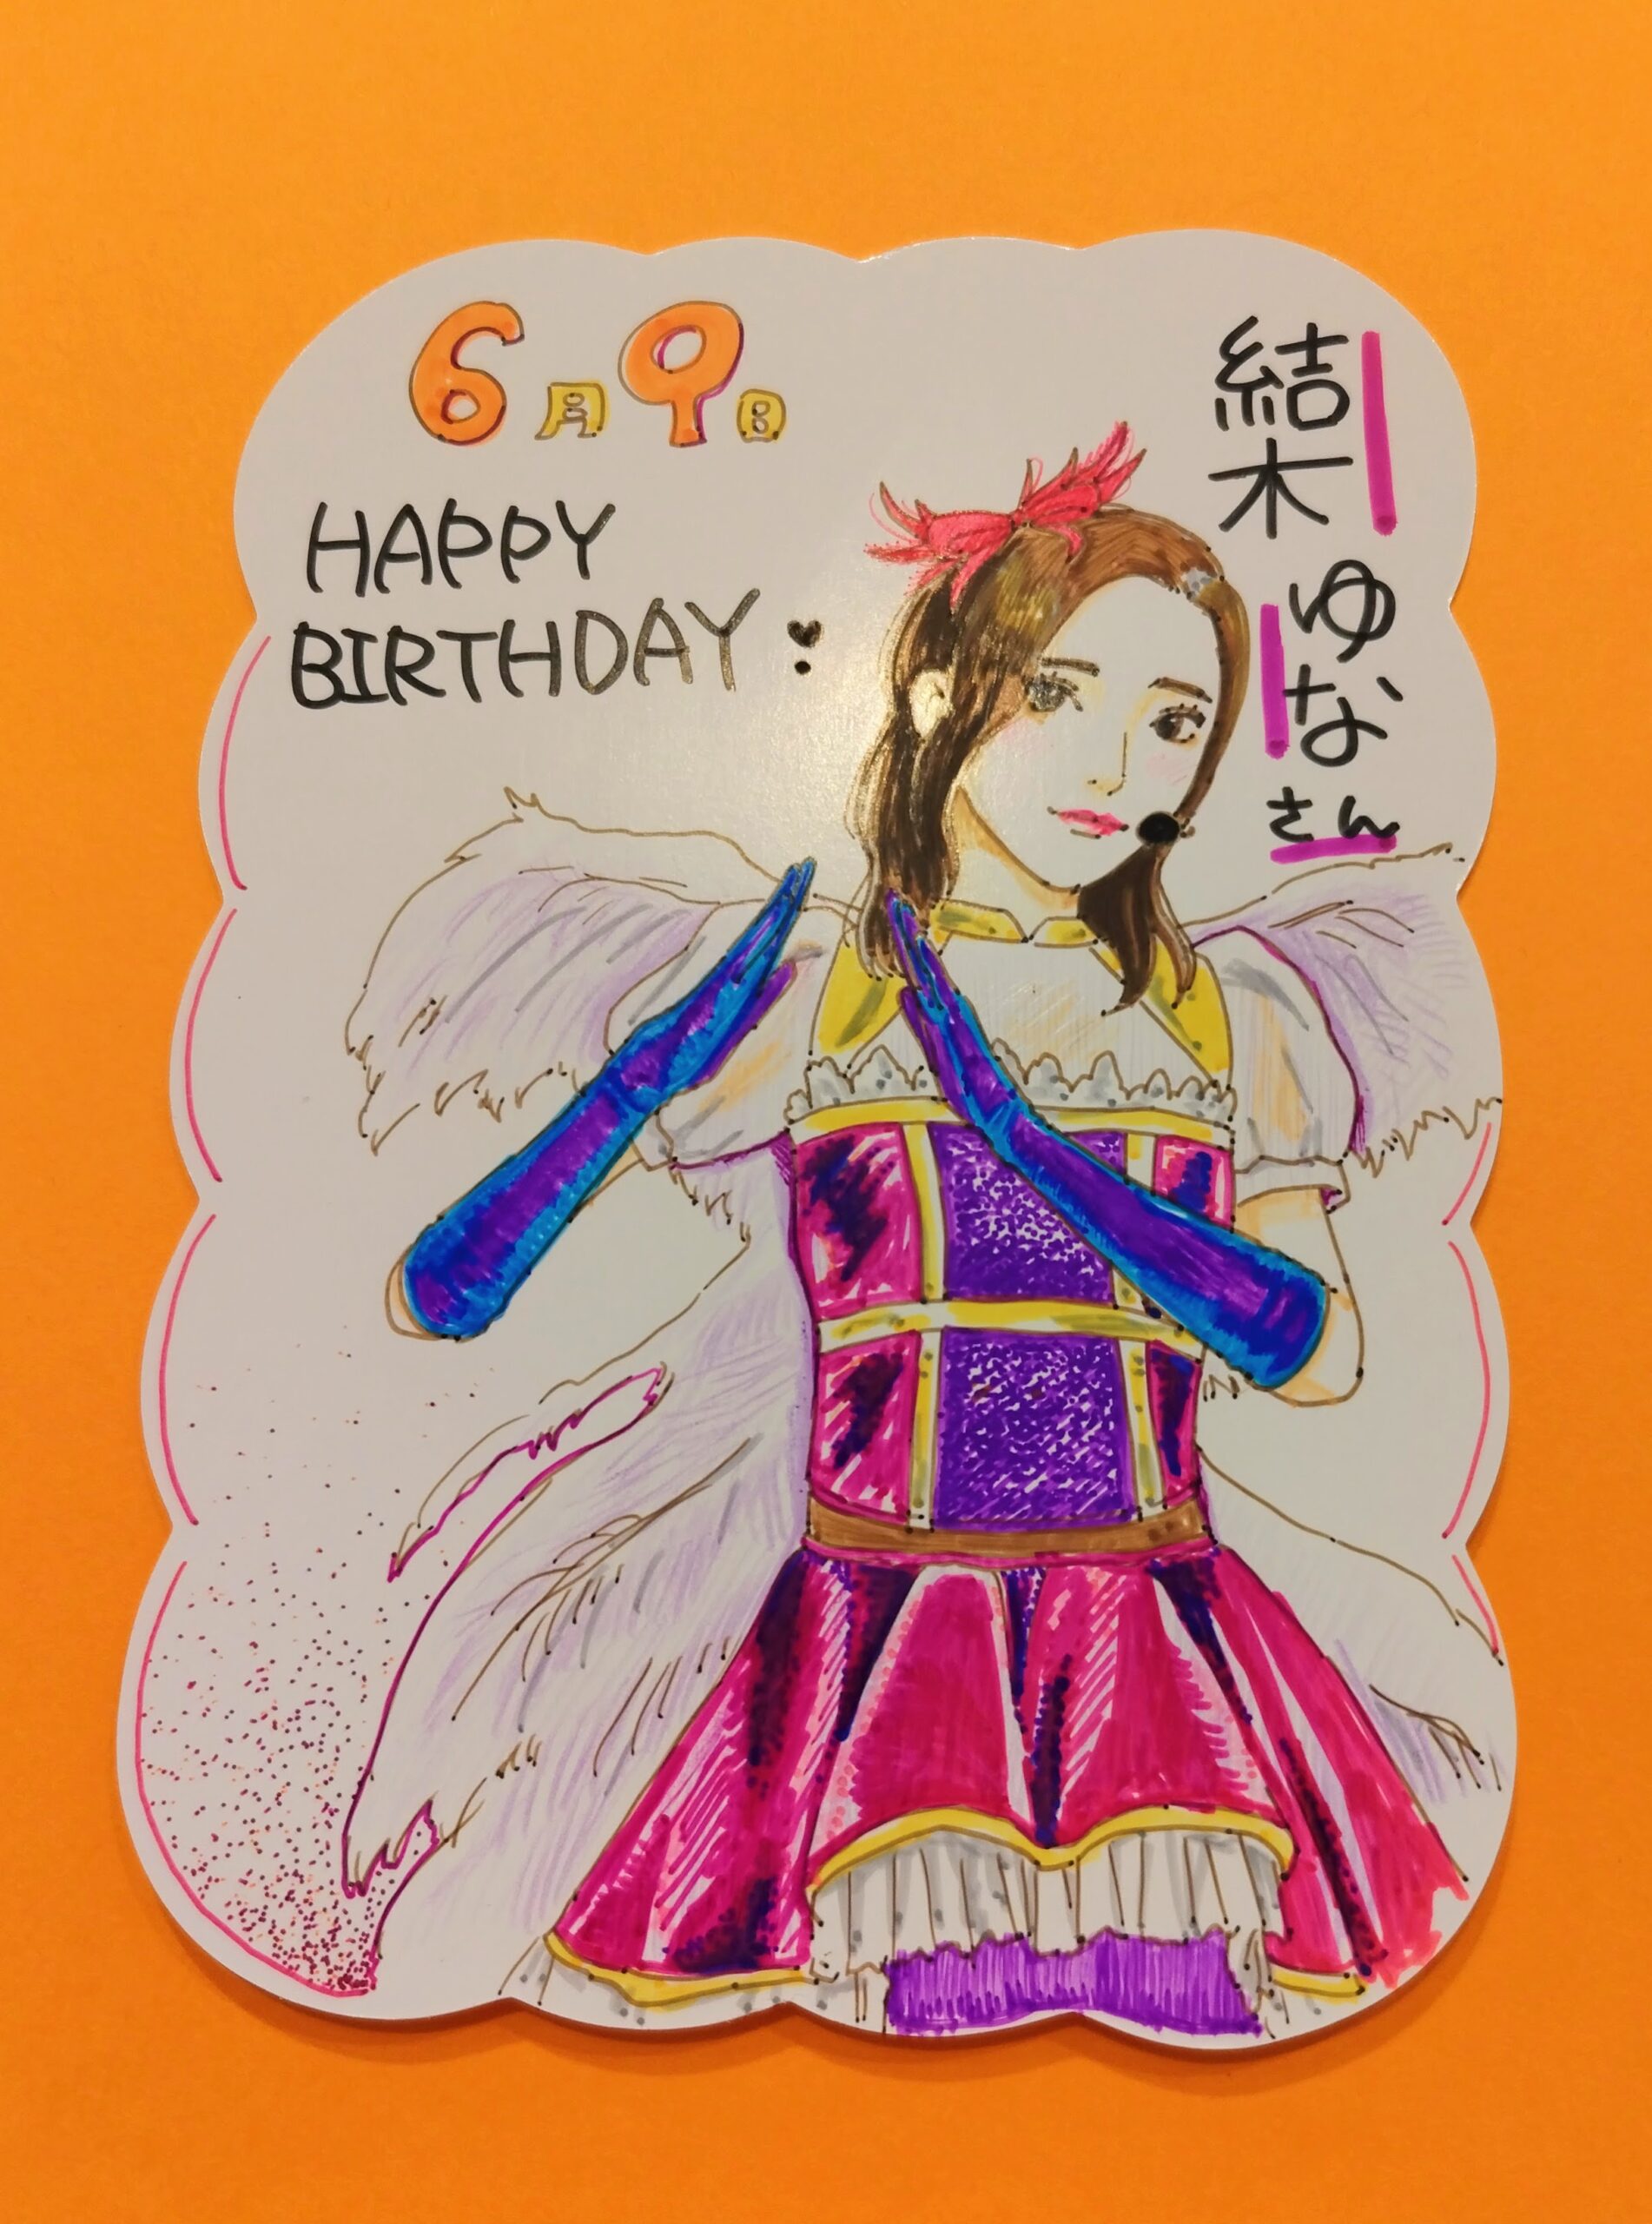 6月9日
HAPPY
BIRTHDAY
結木
ゆな
さん